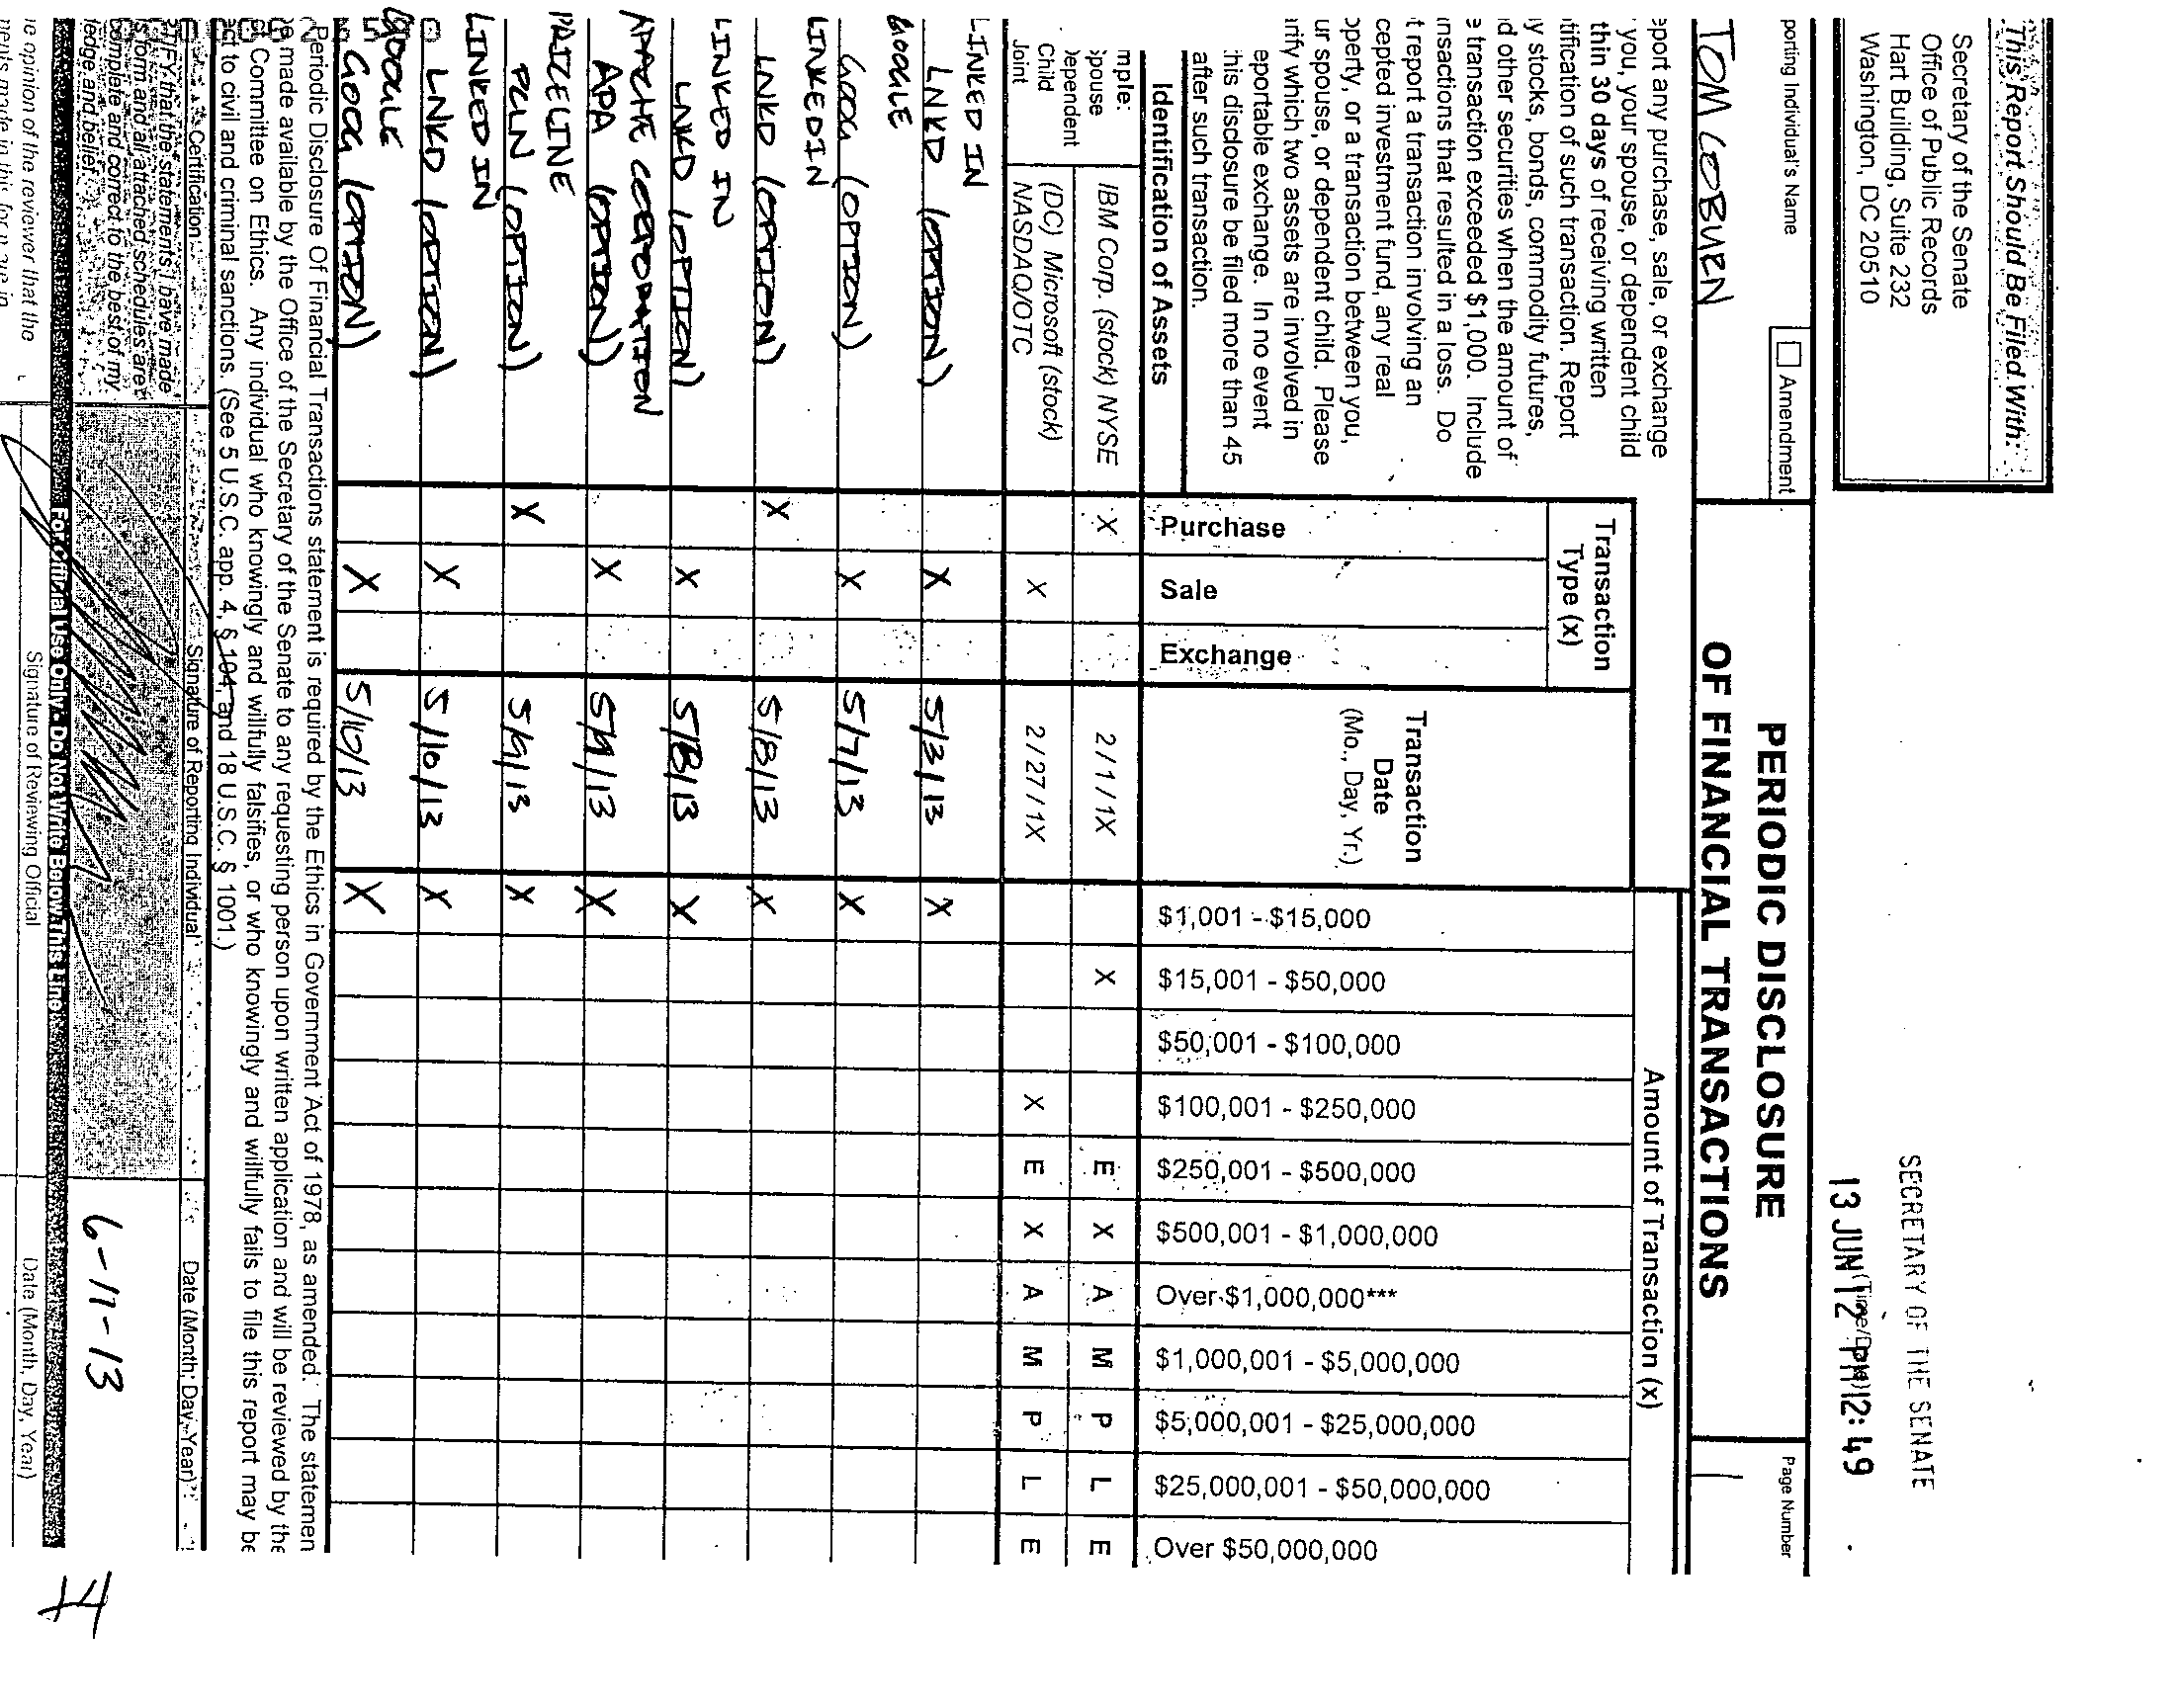 This Report Should Be Filed With:
Secretary of the Senate
Office of Public Records
Hart Building, Suite 232
Washington, DC 20510
SECRETARY OF THE SENATE
13 JUN 12 PM 12:49
porting Individual's Name
Amendment
TOM COBURN
PERIODIC DISCLOSURE
OF FINANCIAL TRANSACTIONS
Page Number
1
eport any purchase, sale, or exchange
you, your spouse, or dependent child
thin 30 days of receiving written
tification of such transaction. Report
y stocks, bonds, commodity futures,
d other securities when the amount of
e transaction exceeded $1,000. Include
nsactions that resulted in a loss. Do
t report a transaction involving an
cepted investment fund, any real
operty, or a transaction between you,
ur spouse, or dependent child. Please
rify which two assets are involved in
eportable exchange. In no event
this disclosure be filed more than 45
after such transaction.
Identification of Assets
Transaction
Type (x)
Purchase
Sale
Exchange
Transaction
Date
(Mo., Day, Yr.)
Amount of Transaction (x)
$1,001 - $15,000
$15,001 - $50,000
$50,001 - $100,000
$100,001 - $250,000
$250,001 - $500,000
$500,001 - $1,000,000
Over $1,000,000***
$1,000,001 - $5,000,000
$5,000,001 - $25,000,000
$25,000,001 - $50,000,000
Over $50,000,000
mple:
Spouse
Dependent
Child
Joint
IBM Corp. (stock) NYSE X 2/1/1X X E X A M P L E
(DC) Microsoft (stock)
NASDAQ/OTC X 2/27/1X X E X A M P L E
LINKED IN
LNKD (OPTION) X 5/3/13 X
GOOGLE
GOOG (OPTION) X 5/7/13 X
LINKEDIN
LNKD (OPTION) X 5/8/13 X
LINKED IN
LNKD (OPTION) X 5/8/13 X
APACHE CORPORATION
APA (OPTION) X 5/9/13 X
PRICELINE
PCLN (OPTION) X 5/9/13 X
LINKED IN
LNKD (OPTION) X 5/10/13 X
GOOGLE
GOOG (OPTION) X 5/10/13 X
Periodic Disclosure Of Financial Transactions statement is required by the Ethics in Government Act of 1978, as amended. The statemen
e made available by the Office of the Secretary of the Senate to any requesting person upon written application and will be reviewed by the
t Committee on Ethics. Any individual who knowingly and willfully falsifies, or who knowingly and willfully fails to file this report may be
ct to civil and criminal sanctions. (See 5 U.S.C. app. 4, § 104, and 18 U.S.C. § 1001.)
Certification
Signature of Reporting Individual
Date (Month, Day, Year)
TIFY that the statements I have made
form and all attached schedules are
complete and correct to the best of my
ledge and belief.
6-11-13
For Official Use Only - Do Not Write Below This Line
e opinion of the reviewer that the
ments made in this form are in
Signature of Reviewing Official
Date (Month, Day, Year)